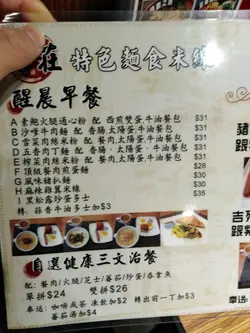 莊 特色麵食米線
醒晨早餐
A 素鮑火腿通心粉 配 西煎雙蛋牛油餐包 $31
B 沙嗲牛肉麵 配 香腸.太陽蛋.牛油餐包 $31
C 雪菜肉絲米粉 配 餐肉.太陽蛋.牛油餐包 $31
D 五香肉丁麵 配 香腸.太陽蛋.牛油餐包 $31
E 榨菜肉絲米粉 配 餐肉.太陽蛋.牛油餐包 $31
F 頂級餐肉蛋麵 $28
G 風味豬扒麵
H 麻辣雞翼米線
I 黑松露炒蛋多士 $35
轉: 蒜香牛油多士加$3
自選健康三文治餐
配: 餐肉/火腿/芝士/蕃茄/炒蛋/吞拿魚
單拼$24 雙拼$26
奉送: 咖啡或茶 凍飲加$2 轉出前一丁加$3
蕃茄湯加$4
豬
跟
吉列
跟